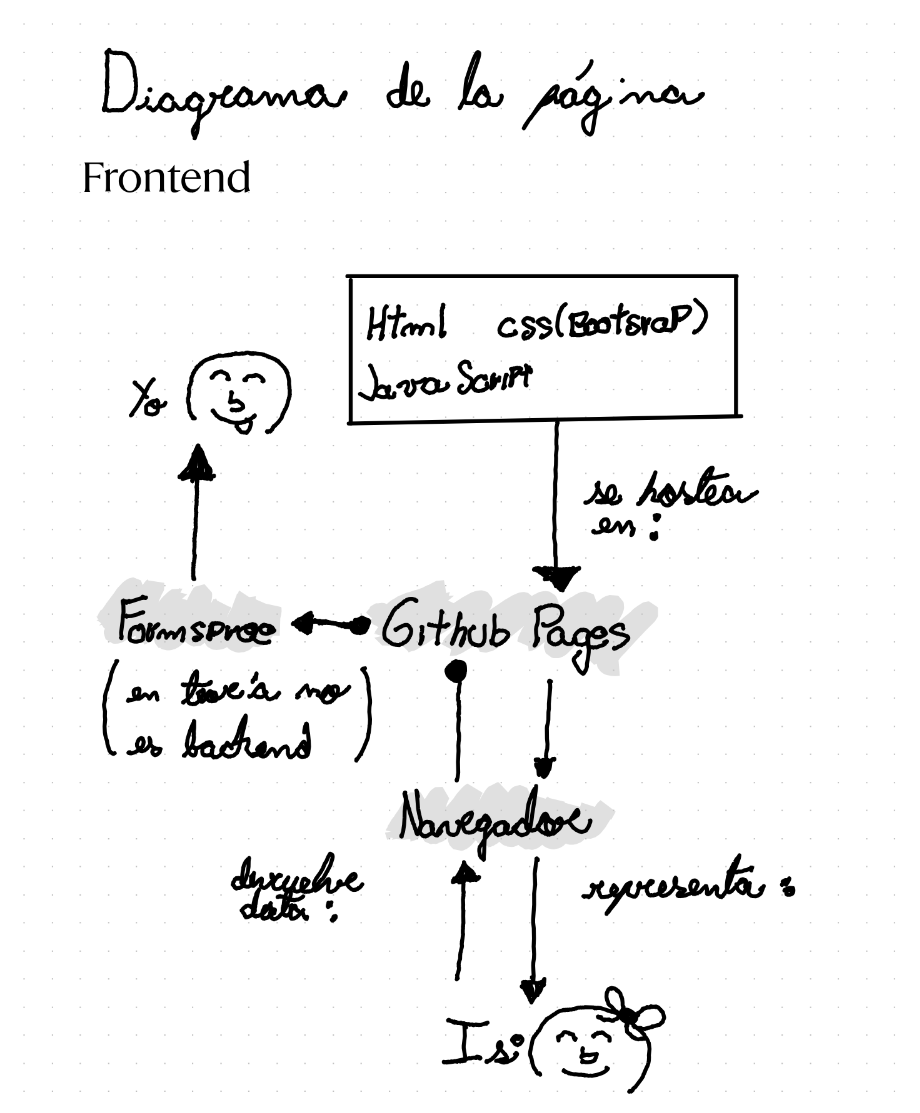 Diagrama de la página
Frontend
Html css(Bootsrap)
JavaScript
Yo
se hostea
en:
Formspree
Github Pages
(en teoría no
es backend)
Navegador
devuelve
data:
representa:
Isi